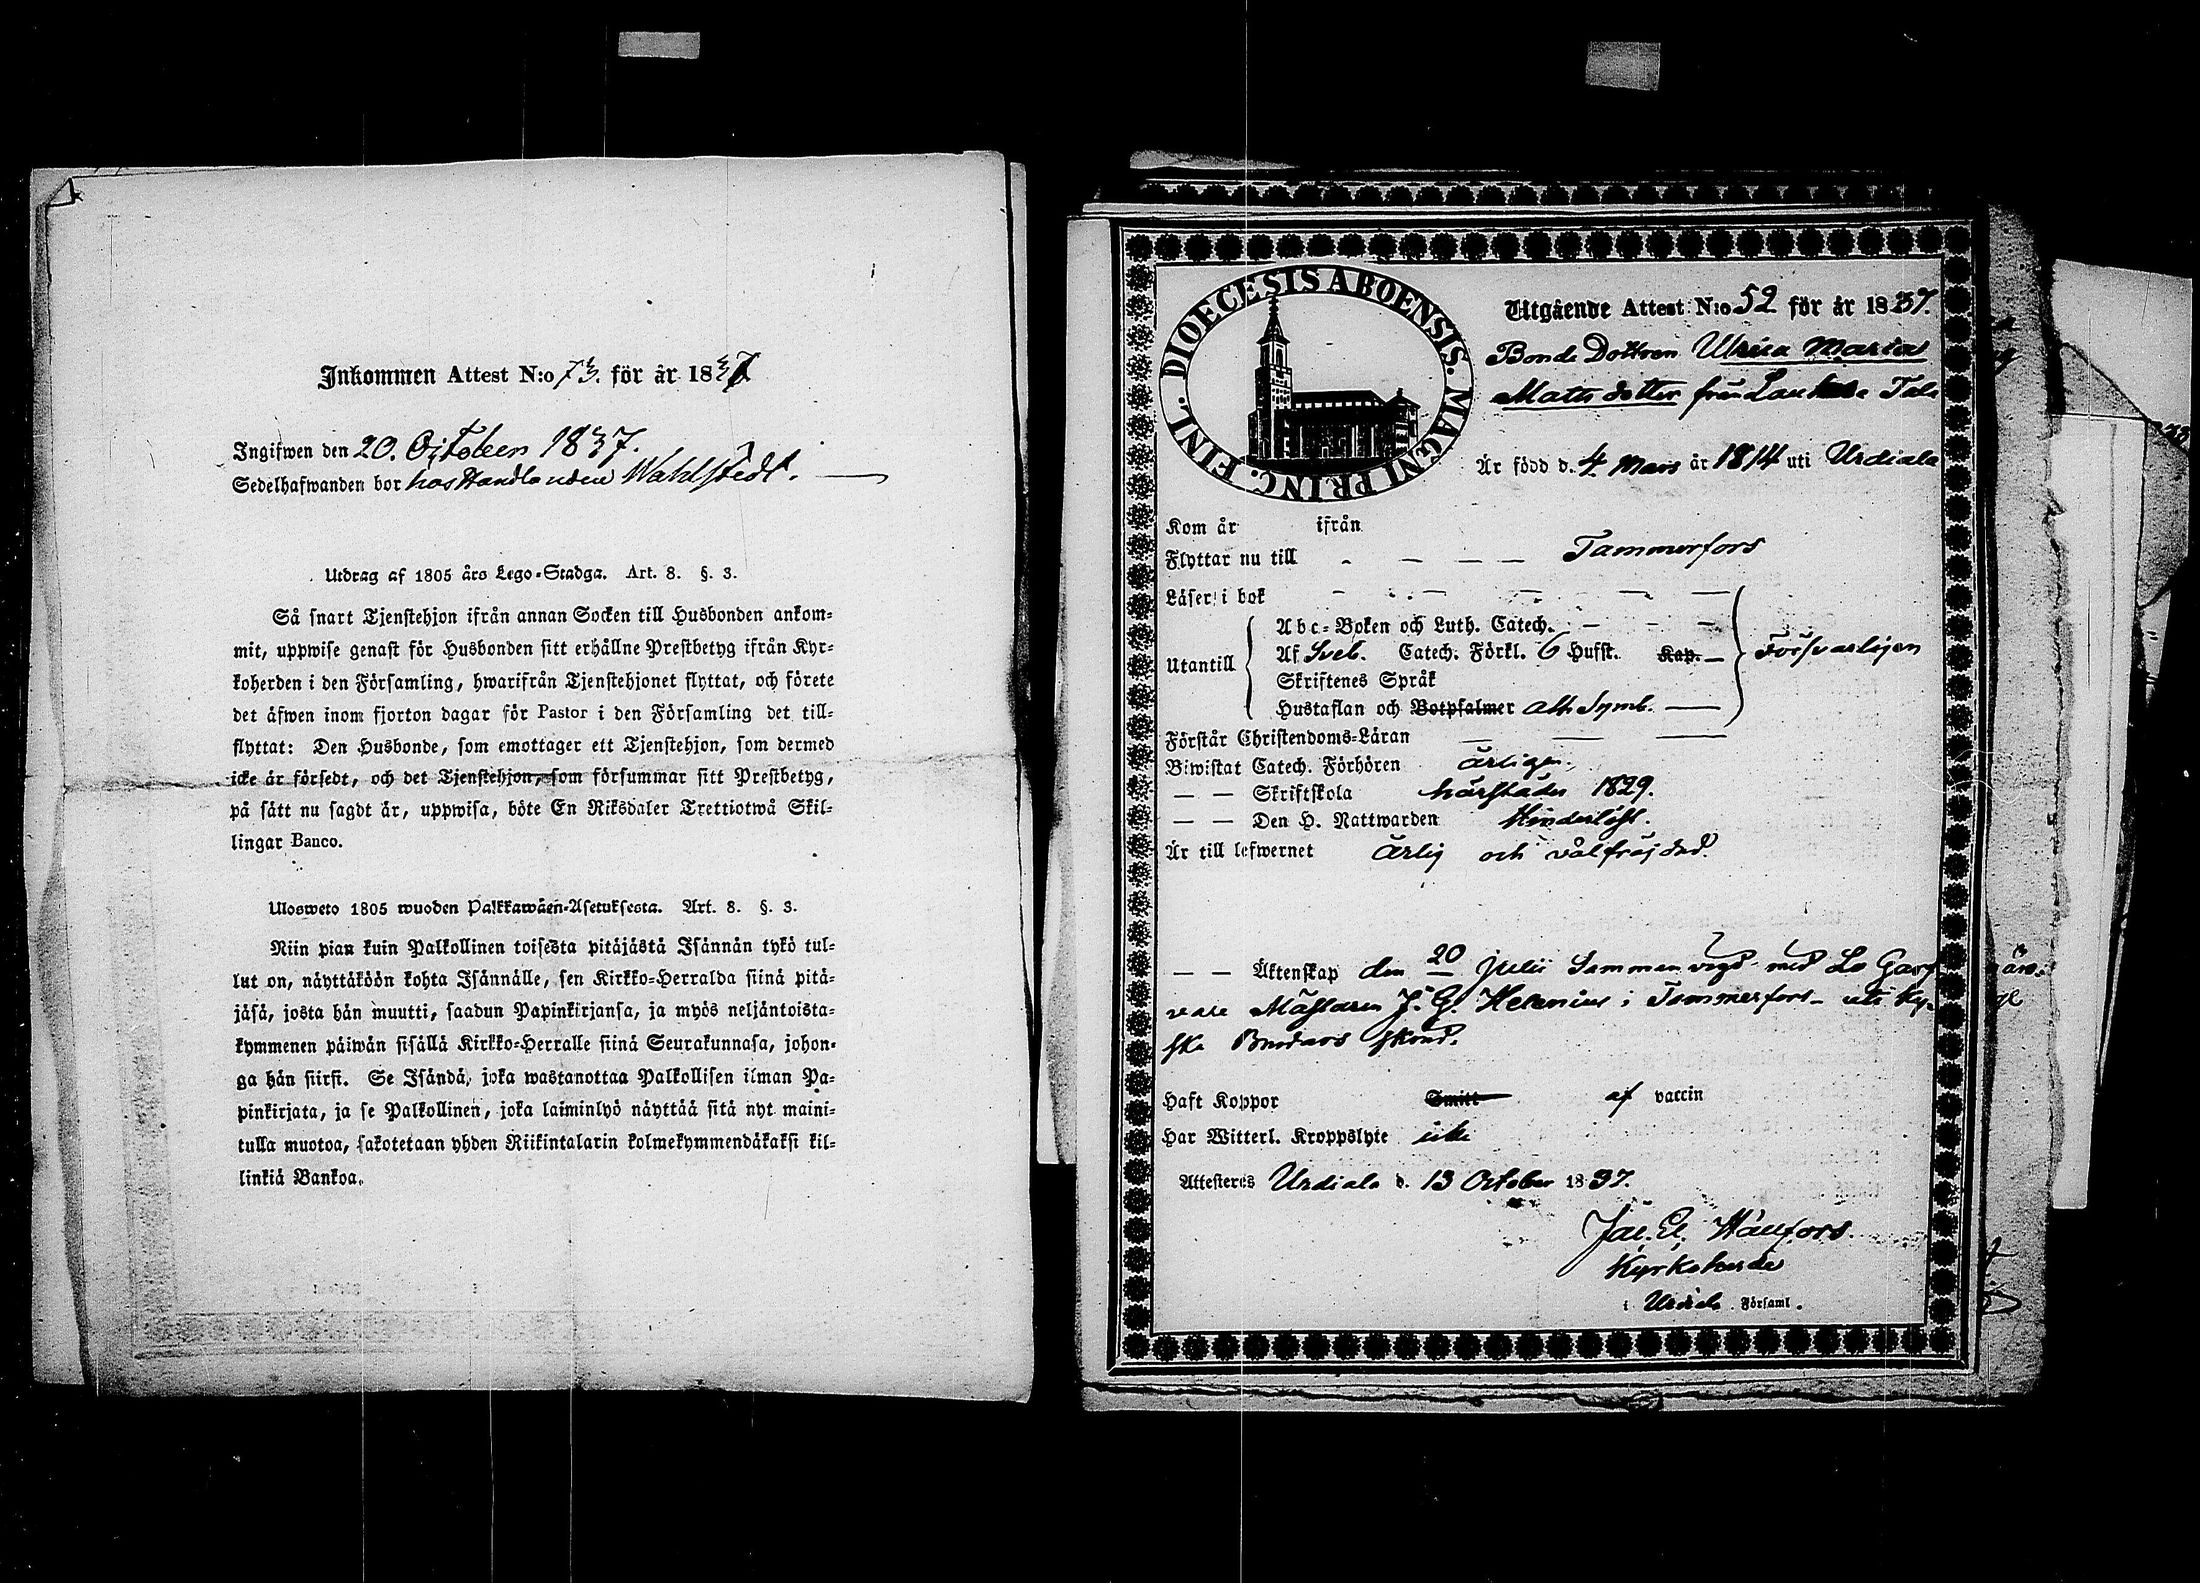 Inkommen Attest N:o 73. för år 1837
Ingifwen den 20. October 1837.
Sedelhafwanden bor hos Handlanden Wahlstedt.
Utdrag af 1805 års Lego-Stadga. Art. 8. §. 3.
Så snart Tjenstehjon ifrån annan Socken till Husbonden ankom-
mit, uppwise genast för Husbonden sitt erhållne Prestbetyg ifrån Kyr-
koherden i den Församling, hwarifrån Tjenstehjonet flyttat, och förete
det äfwen inom fjorton dagar för Pastor i den Församling det till-
flyttat: Den Husbonde, som emottager ett Tjenstehjon, som dermed
icke är försedt, och det Tjenstehjon, som försummar sitt Prestbetyg,
på sätt nu sagdt är, uppwisa, böte En Riksdaler Trettiotwå Skil-
lingar Banco.
Ulosweto 1805 wuoden Palkkawäen-Asetuksesta. Art. 8. §. 3.
Niin pian kuin Palkollinen toisesta pitäjästä Isännän tykö tul-
lut on, näyttäköön kohta Isännälle, sen Kirkko-Herralda siinä pitä-
jäsä, josta hän muutti, saadun Papinkirjansa, ja myös neljäntoista-
kymmenen päiwän sisällä Kirkko-Herralle siinä Seurakunnasa, johon-
ga hän siirsi. Se Isändä, joka wastanottaa Palkollisen ilman Pa-
pinkirjata, ja se Palkollinen, joka laiminlyö näyttää sitä nyt maini-
tulla muotoa, sakotetaan yhden Riikintalarin kolmekymmendäkaksi kil-
linkiä Bankoa.
DIOECESIS ABOENSIS. MAGNI PRINC. FINL.
Utgående Attest N:o 52 för år 1837.
Bonde Dottren Ulrica Maria
Matts dotter från
Är född d. 4 Mars år 1814 uti Urdiala
Kom år ifrån
Flyttar nu till - — — — Tammerfors
Läser i bok
Abc-Boken och Luth. Catech.
Utantill Af Sveb. Catech. Förkl. 6 Hufst. Kap. — Försvarligen
Skriftenes Språk
Hustaflan och Botpsalmer Ath. Symb. —
Förstår Christendoms-Läran
Biwistat Catech. Förhören årligen.
— — Skriftskola härstädes 1829.
— — Den H. Nattwarden Hinderlöst.
Är till lefwernet Ärlig och välfräjdad.
— — Äktenskap den 20 Julii Sammanvigd med
Mästaren J. G. Helenius i Tammerfors
Haft Koppor Smitt af vaccin
Har Witterl. Kroppslyte icke
Attesteres Urdiala d. 13 October 1837.
Kyrkoherde
i Urdiala Församl.